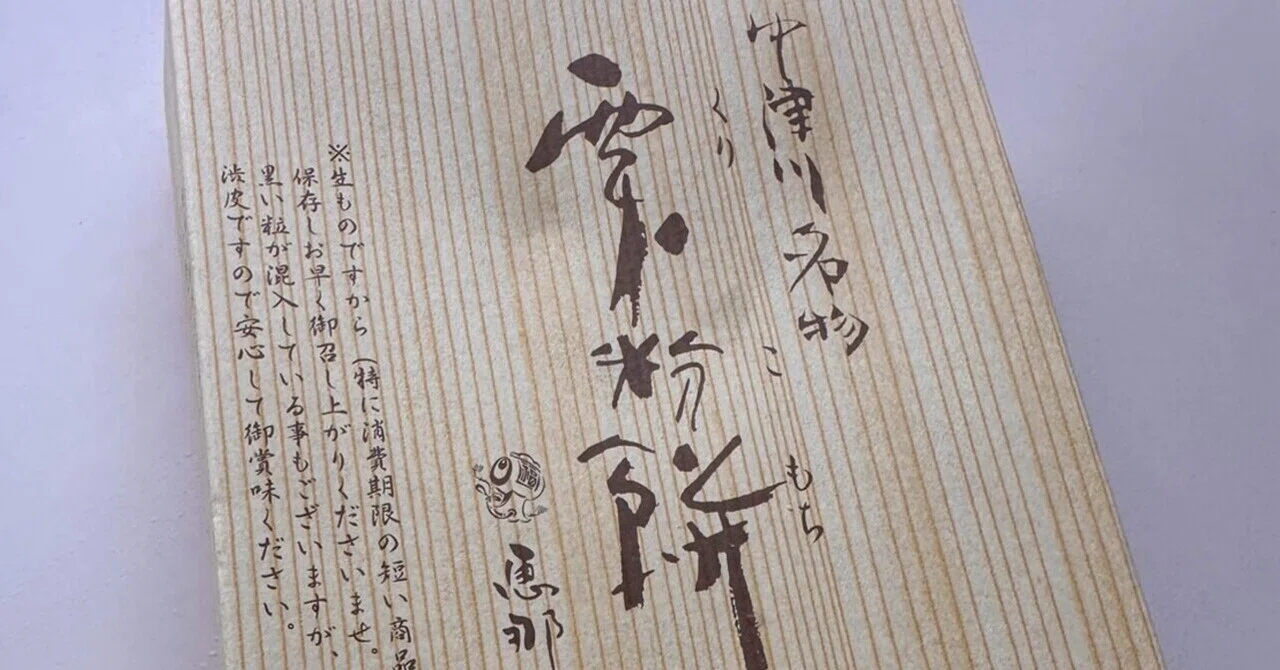 中津川名物
くりこもち
栗粉餅
恵那
※生ものですから(特に消費期限の短い商品
保存しお早く御召し上がりくださいませ。
黒い粒が混入している事もございますが、
渋皮ですので安心して御賞味ください。